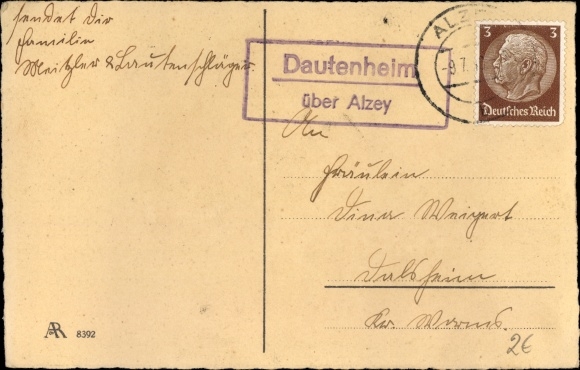 sendet Dir
Familie
Meitzler & Lautenschläger.
Dautenheim
über Alzey
ALZE
-9.7.
3 3
Deutsches Reich
An
Fräulein
Dina Weigert
Dalsheim
Kr. Worms.
AR 8392
2€